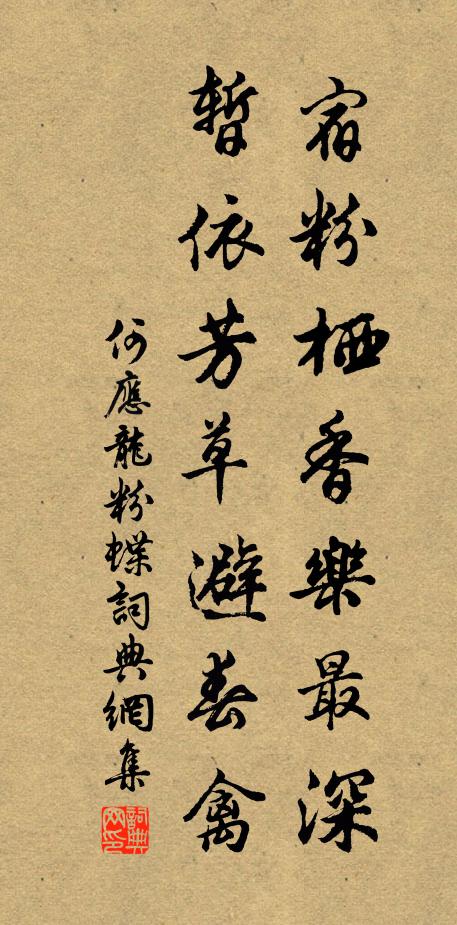 宿粉栖香樂最深
暫依芳草避春禽
何應龍粉蝶詞典網集
詞典网印